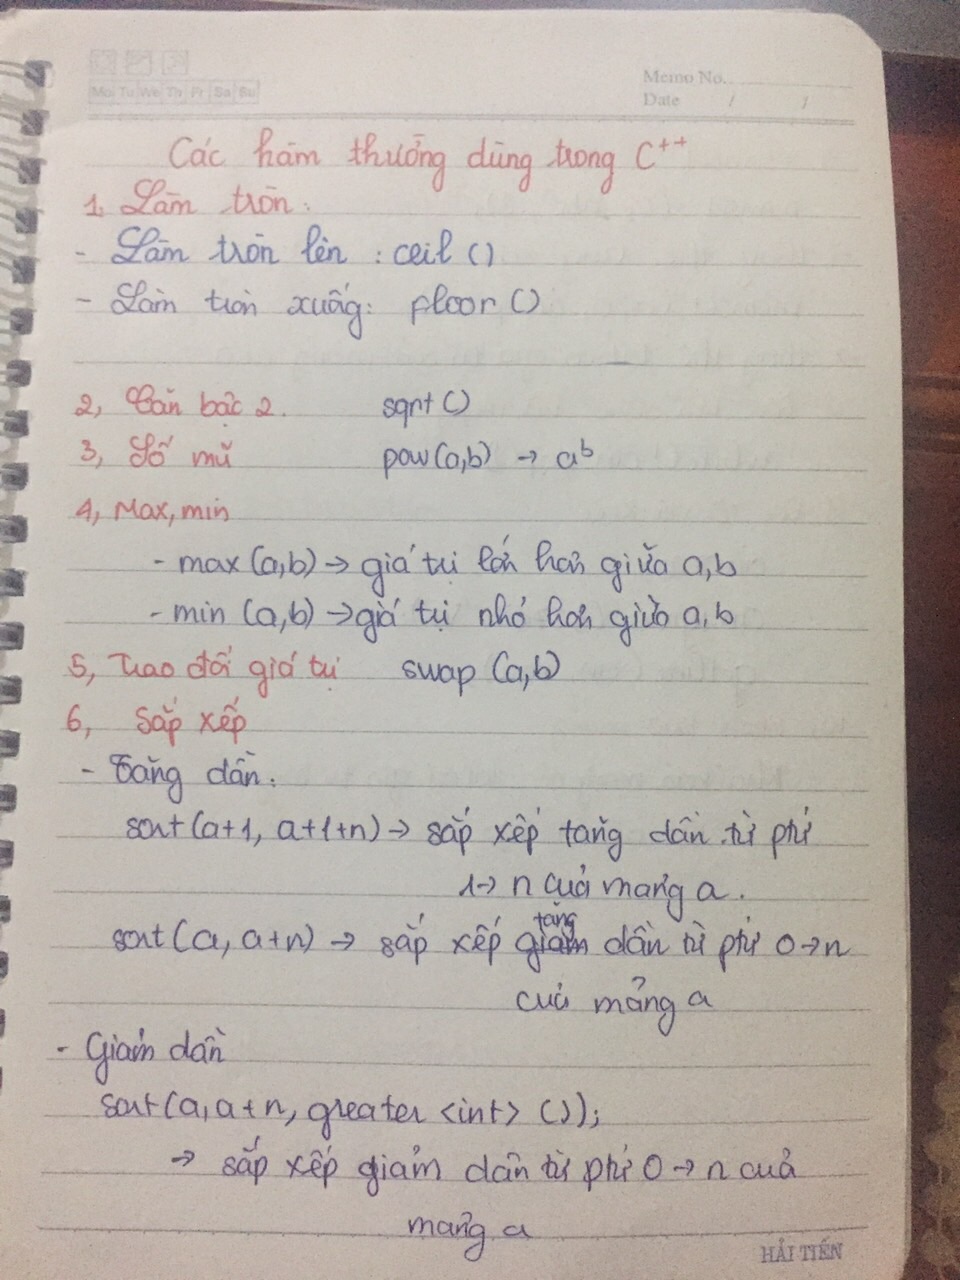 Memo No.
Mo Tu We Th Fr Sa Su
Date / /
Các hàm thường dùng trong C++
1, Làm tròn:
- Làm tròn lên : ceil ()
- Làm tròn xuống: floor ()
2, Căn bậc 2. sqrt ()
3, Số mũ pow(a,b) → a^b
4, Max, min
- max (a,b) → giá trị lớn hơn giữa a,b
- min (a,b) → giá trị nhỏ hơn giữa a,b
5, Trao đổi giá trị swap (a,b)
6, Sắp xếp
- Tăng dần:
sort (a+1, a+1+n) → sắp xếp tăng dần từ ptử
1 → n của mảng a.
tăng
sort (a, a+n) → sắp xếp giảm dần từ ptử 0 → n
của mảng a
- Giảm dần
sort (a, a+n, greater <int> ());
→ sắp xếp giảm dần từ ptử 0 → n của
mảng a
HẢI TIẾN